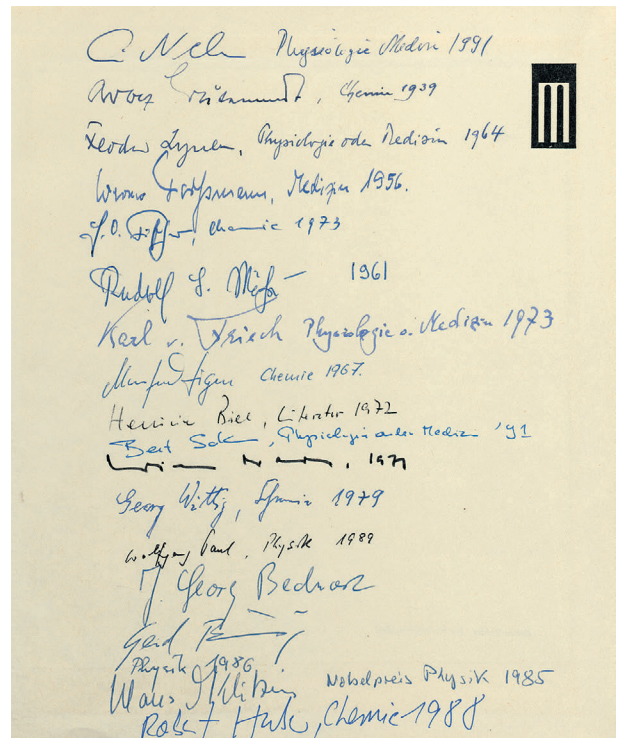 E. Neher Physiologie Medizin 1991
Adolf Butenandt, Chemie 1939
Feodor Lynen, Physiologie oder Medizin 1964
Werner Forßmann, Medizin 1956.
E.O. Fischer, Chemie 1973
Rudolf L. Mößbauer 1961
Karl v. Frisch Physiologie o. Medizin 1973
Manfred Eigen Chemie 1967.
Heinrich Böll, Literatur 1972
Bert Sakmann, Physiologie oder Medizin '91
, 1971
Georg Wittig, Chemie 1979
Wolfgang Paul, Physik 1989
J. Georg Bednorz
Gerd Binnig
Physik 1986
Klaus v. Klitzing Nobelpreis Physik 1985
Robert Huber, Chemie 1988